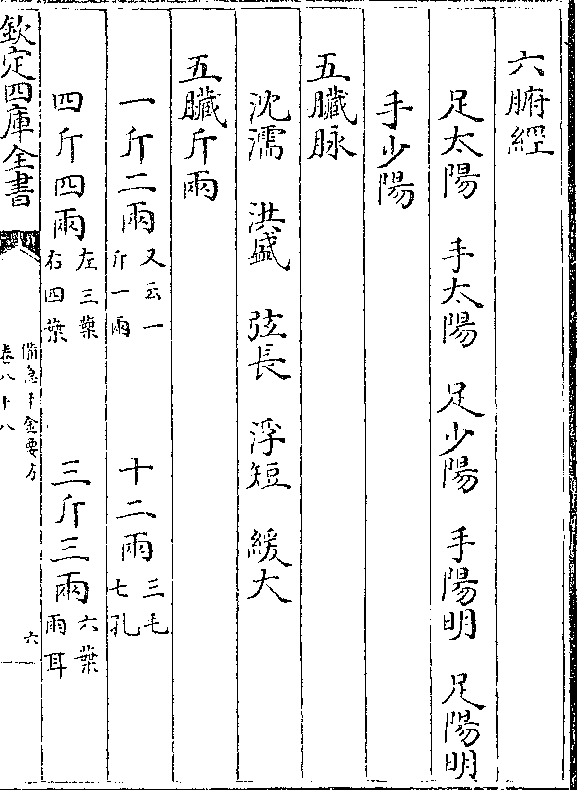 六腑經
足太陽 手太陽 足少陽 手陽明 足陽明
手少陽
五臟脉
沈濡 洪盛 弦長 浮短 緩大
五臟斤兩
一斤二兩又云一斤一兩 十二兩三毛七孔
四斤四兩左三葉右四葉 三斤三兩六葉兩耳
欽定四庫全書 備急千金要方卷八十八 六